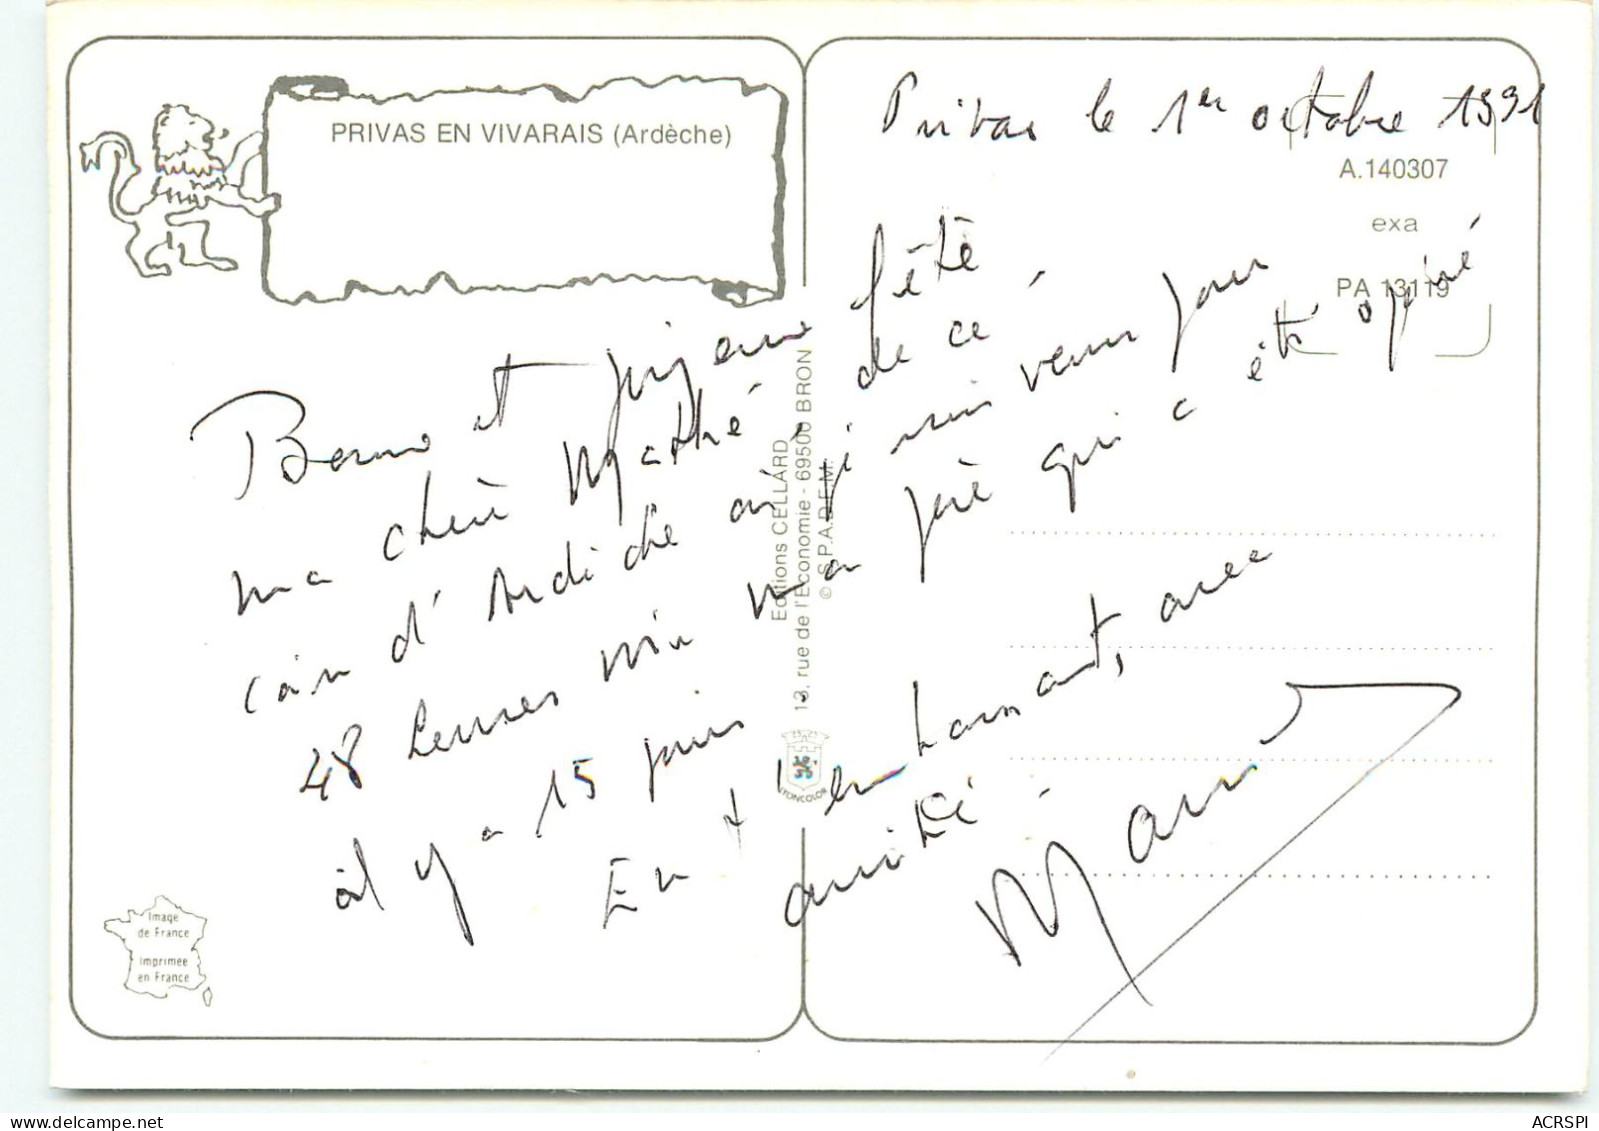 PRIVAS EN VIVARAIS (Ardèche)
Privas le 1er octobre 1991
A.140307
exa
PA 13119
Bonne et joyeuse fête
ma chère Mathé de ce
coin d'Ardèche où j'
48 heures suis venu pour
voir mon père qui a été opéré
il y a 15 jours
En t'embrassant, avec
amitié.
Editions CELLARD
13, rue de l'Economie - 69500 BRON
© S.P.A.D.E.M.
LYONCOLOR
Image
de France
Imprimée
en France
ACRSPI